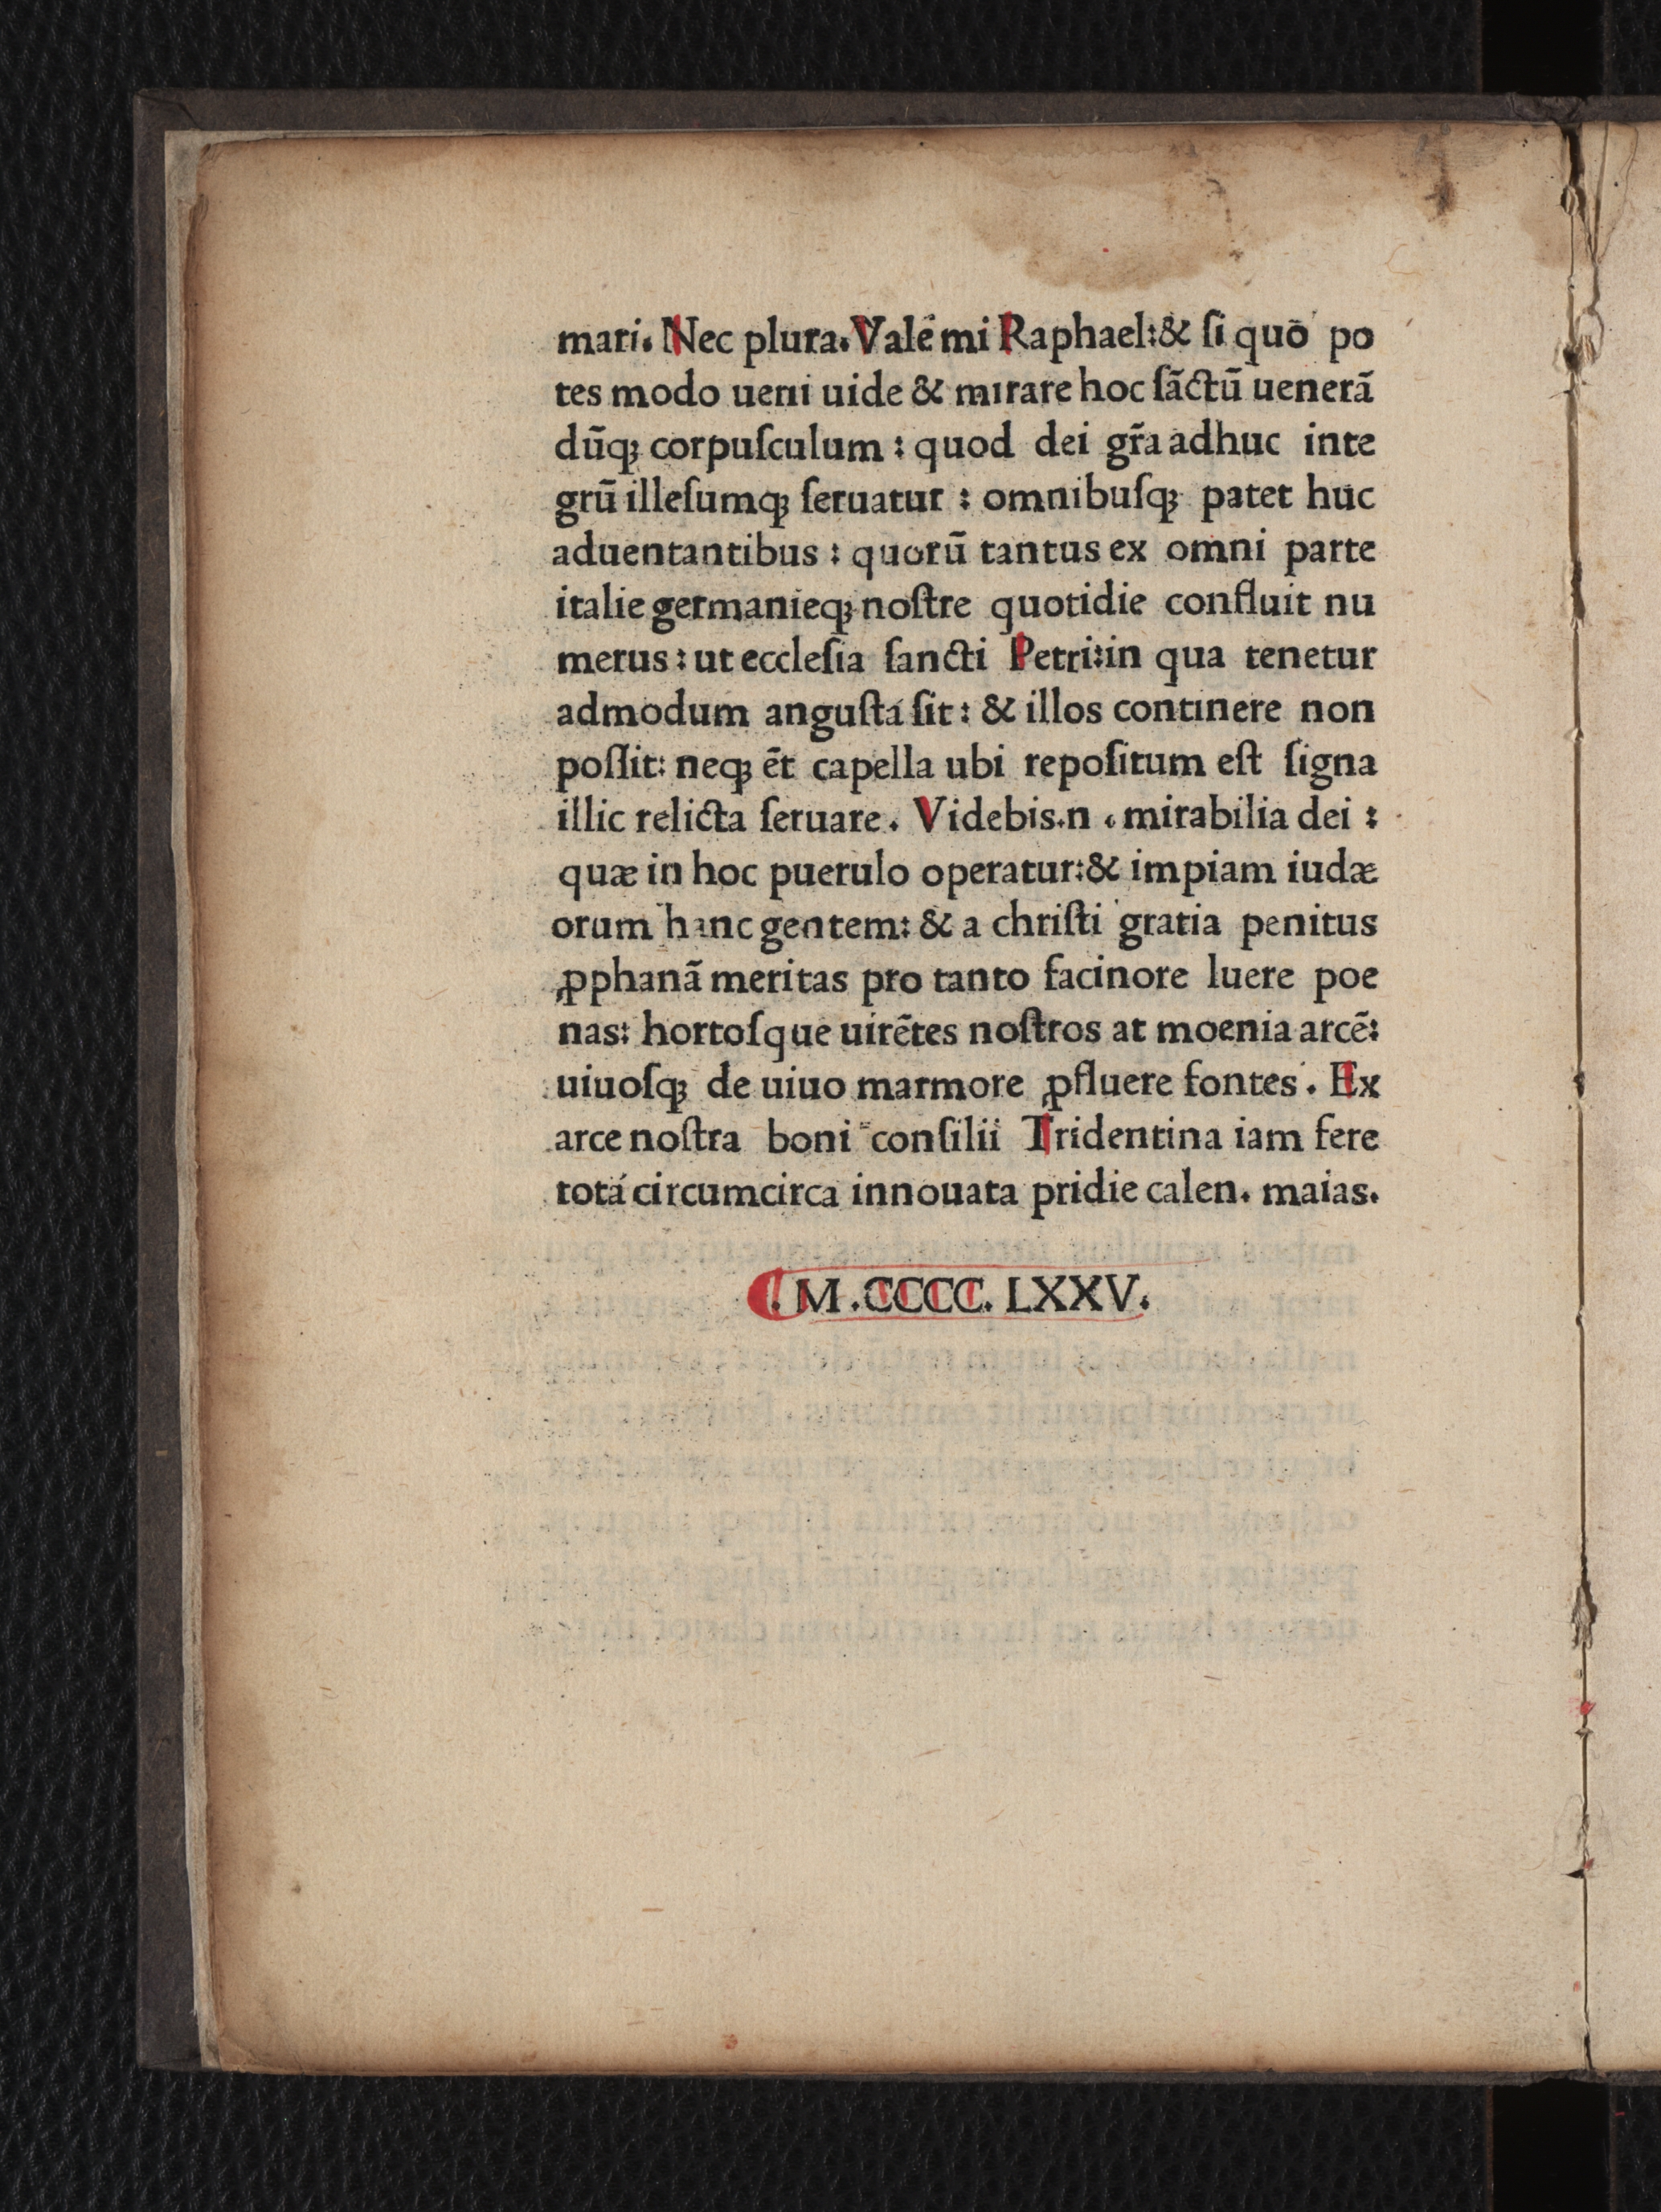 mari. Nec plura. Vale mi Raphael: & ſi quō po
tes modo ueni uide & mirare hoc ſāctū uenerā
dūqꝫ corpuſculum : quod dei gr̄a adhuc inte
grū illeſumqꝫ ſeruatur : omnibuſqꝫ patet huc
aduentantibus : quorū tantus ex omni parte
italie germanieqꝫ noſtre quotidie confluit nu
merus : ut eccleſia ſancti Petri: in qua tenetur
admodum anguſta ſit : & illos continere non
poſſit: neqꝫ ēt capella ubi repoſitum eſt ſigna
illic relicta ſeruare. Videbis .n . mirabilia dei :
quæ in hoc puerulo operatur: & impiam iudæ
orum hanc gentem: & a chriſti gratia penitus
ꝓphanā meritas pro tanto facinore luere poe
nas: hortoſque uirētes noſtros at moenia arcē:
uiuoſqꝫ de uiuo marmore ꝓfluere fontes . Ex
arce noſtra boni conſilii Tridentina iam fere
tota circumcirca innouata pridie calen. maias.
.M.CCCC.LXXV.